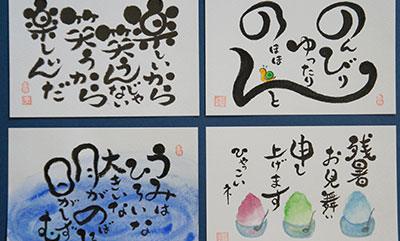 楽しいから
笑うんじゃない
笑うから
楽しんだ
のんびり
ゆったり
のほほんと
うみは
ひろいな
大きいな
月がのぼ
日がしずむ
残暑
お見舞い
申し
上げます
ひゃっこいネ